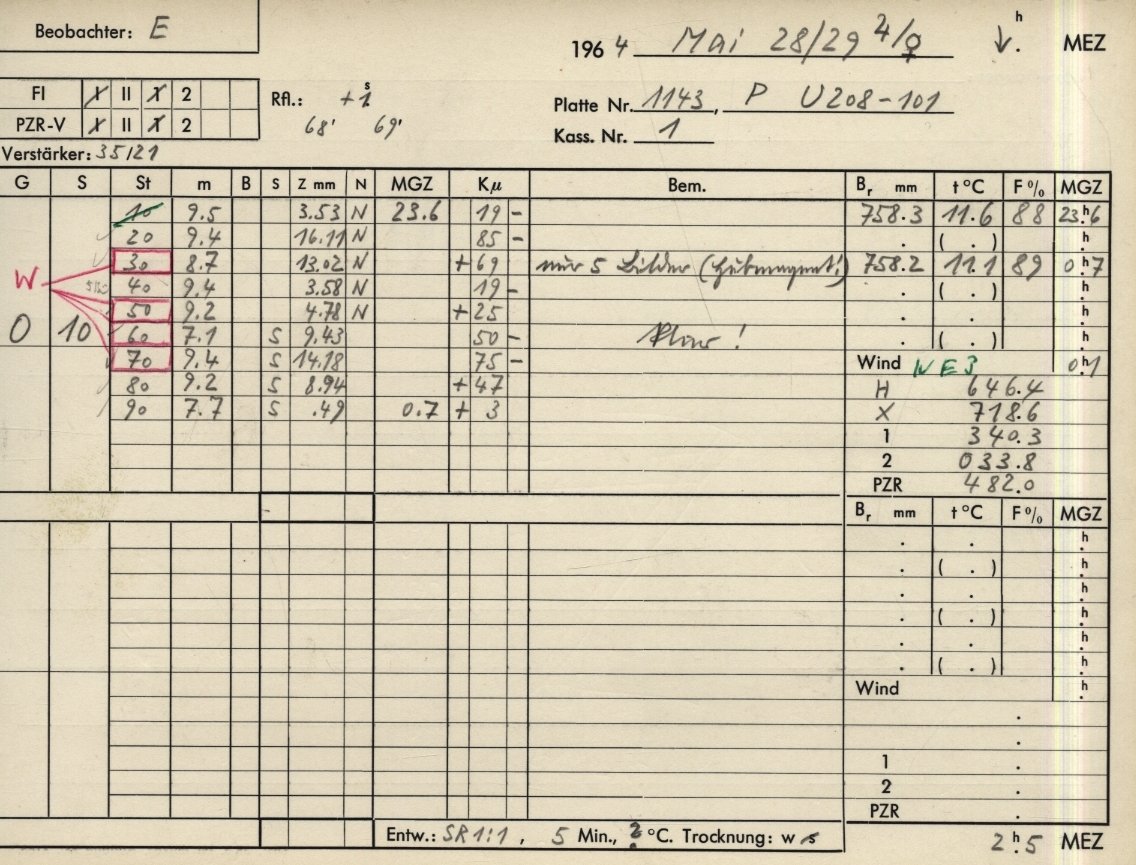 Beobachter: E
1964 Mai 28/29 ♃/♀ ↓ . h MEZ
FI I II 1 2
PZR-V I II 1 2
Rfl.: +1 s
68' 69'
Platte Nr. 1143, P U208-101
Kass. Nr. 1
Verstärker: 35/21
G S St m B S Z mm N MGZ Kμ Bem. Br mm t°C F% MGZ
10 9.5 3.53 N 23.6 19 - 758.3 11.6 88 23.h6
20 9.4 16.11 N 85 - . ( . ) .h
W 30 8.7 13.02 N +69 nur 5 Bilder (Hubmagnet!) 758.2 11.1 89 0.h7
40 9.4 3.58 N 19 - . ( . ) .h
50 9.2 4.78 N +25 . . .h
0 10 60 7.1 S 9.43 50 - Klar! . ( . ) .h
70 9.4 S 14.18 75 - Wind NE3 0.h1
80 9.2 S 8.94 +47 H 646.4
90 7.7 S .49 0.7 + 3 X 718.6
1 340.3
2 033.8
PZR 482.0
Br mm t°C F% MGZ
. . .h
. ( . ) .h
. . .h
. ( . ) .h
. . .h
. ( . ) .h
Wind .h
.
.
1 .
2 .
PZR .
Entw.: SR 1:1, 5 Min., ? °C. Trocknung: w s
2.h5 MEZ